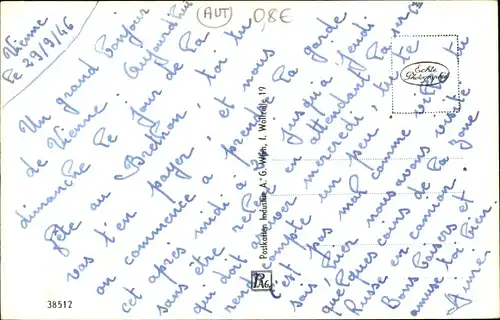 Vienne
le 29/9/46
(AUT) 0,8€
Un grand bonjour
de Vienne Aujourd'hui
dimanche le jour de la
fête au Brethon, toi tu
vas t'en payer, et nous
on commence à prendre la garde
cet après midi à jusqu'à jeudi
sans être en attendant la
qui doit arriver mercredi, tu te
rend compte un peu comme
c'est pas mal
hier nous avons visité
quelques coins de la zone
Russe en camion
Bons baisers et
amuse toi bien
Echte Photographie
Postkarten Industrie A.-G. Wien, I. Wollzeile 19
PAG
38512